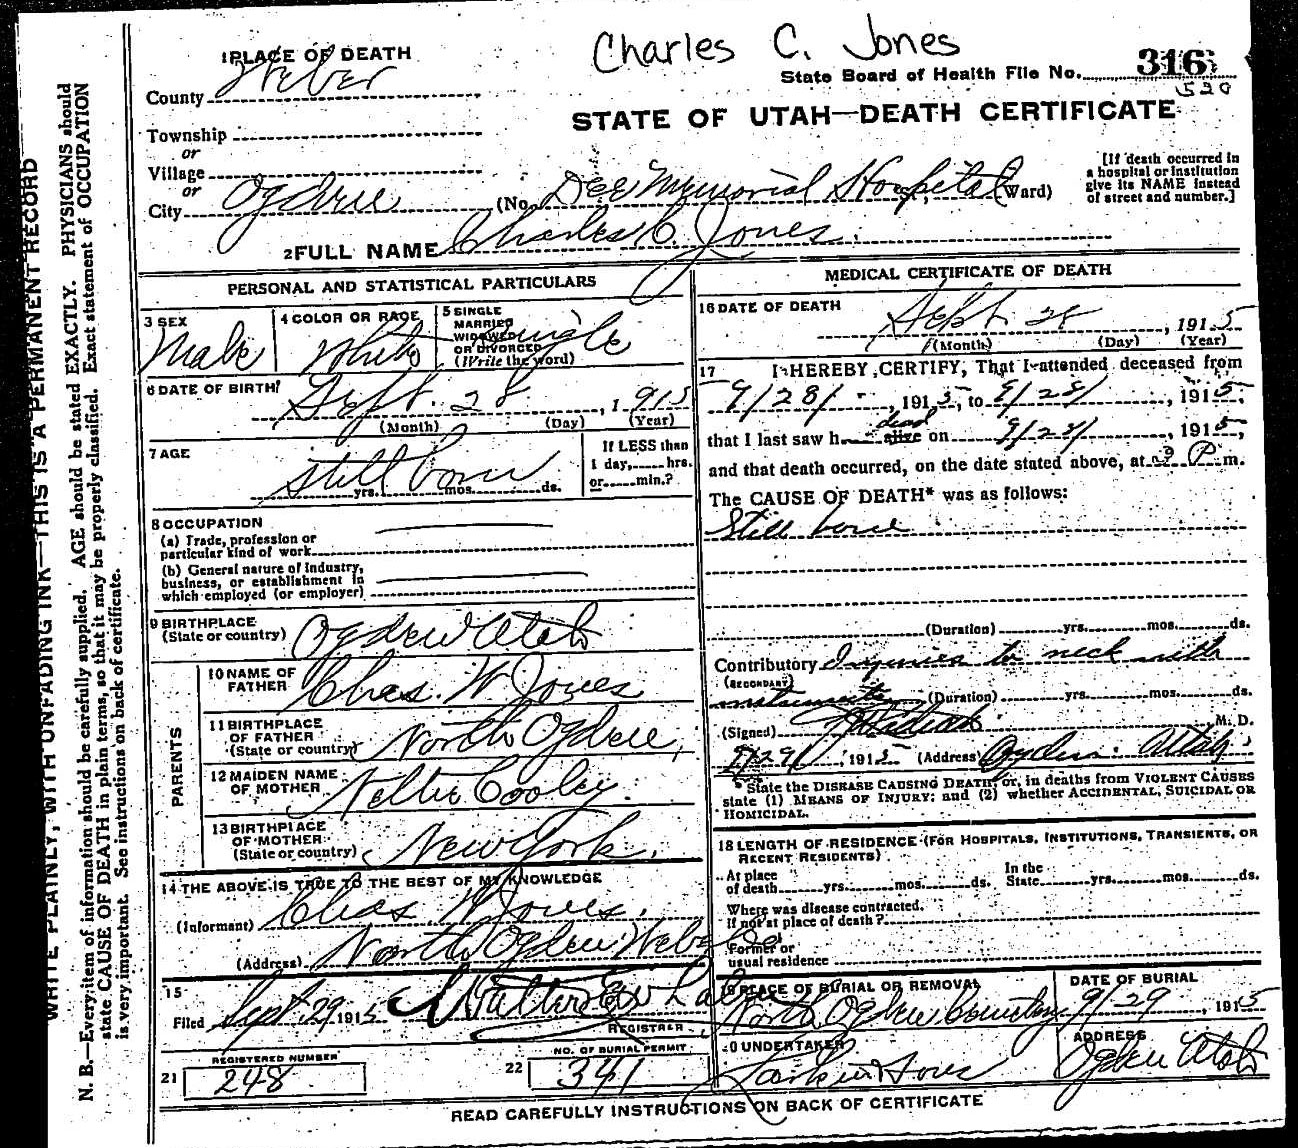 Charles C. Jones
1 PLACE OF DEATH
State Board of Health File No. 316
520
County Weber
STATE OF UTAH—DEATH CERTIFICATE
Township
or
Village
or
City Ogden (No. Dee Memorial Hospital Ward)
[If death occurred in
a hospital or institution
give its NAME instead
of street and number.]
2 FULL NAME Charles C. Jones.
PERSONAL AND STATISTICAL PARTICULARS
3 SEX
Male
4 COLOR OR RACE
White
5 SINGLE
MARRIED
WIDOWED
OR DIVORCED
(Write the word)
Single
6 DATE OF BIRTH
Sept. 28, 1915
(Month) (Day) (Year)
7 AGE
still born
yrs. mos. ds.
If LESS than
1 day, hrs.
or min.?
8 OCCUPATION
(a) Trade, profession or
particular kind of work
(b) General nature of industry,
business, or establishment in
which employed (or employer)
9 BIRTHPLACE
(State or country) Ogden Utah
PARENTS
10 NAME OF
FATHER Chas. W Jones
11 BIRTHPLACE
OF FATHER
(State or country) North Ogden,
12 MAIDEN NAME
OF MOTHER Nellie Cooley.
13 BIRTHPLACE
OF MOTHER
(State or country) New York.
14 THE ABOVE IS TRUE TO THE BEST OF MY KNOWLEDGE
(Informant) Chas W Jones.
(Address) North Ogden Weber Co
15
Filed Sept 29 1915 Walter E Whalen
REGISTRAR
REGISTERED NUMBER
21 248
NO. OF BURIAL PERMIT
22 341
MEDICAL CERTIFICATE OF DEATH
16 DATE OF DEATH
Sept 28, 1915
(Month) (Day) (Year)
17 I HEREBY CERTIFY, That I attended deceased from
9/28/, 1915, to 9/28/, 1915,
that I last saw h alive dead on 9/28/, 1915,
and that death occurred, on the date stated above, at 9 P. m.
The CAUSE OF DEATH* was as follows:
Still born
(Duration) yrs. mos. ds.
Contributory Injuries to neck with
(SECONDARY)
instruments (Duration) yrs. mos. ds.
(Signed) M. D.
9/29/, 1915 (Address) Ogden. Utah.
*State the DISEASE CAUSING DEATH, or, in deaths from VIOLENT CAUSES
state (1) MEANS OF INJURY; and (2) whether ACCIDENTAL, SUICIDAL OR
HOMICIDAL.
18 LENGTH OF RESIDENCE (FOR HOSPITALS, INSTITUTIONS, TRANSIENTS, OR
RECENT RESIDENTS)
At place
of death yrs. mos. ds.
In the
State yrs. mos. ds.
Where was disease contracted,
if not at place of death?
Former or
usual residence
19 PLACE OF BURIAL OR REMOVAL
North Ogden Cemetery
DATE OF BURIAL
9/29, 1915
20 UNDERTAKER
Larkin & Sons
ADDRESS
Ogden Utah
READ CAREFULLY INSTRUCTIONS ON BACK OF CERTIFICATE
WRITE PLAINLY, WITH UNFADING INK—THIS IS A PERMANENT RECORD
N. B.—Every item of information should be carefully supplied. AGE should be stated EXACTLY. PHYSICIANS should
state CAUSE OF DEATH in plain terms, so that it may be properly classified. Exact statement of OCCUPATION
is very important. See instructions on back of certificate.